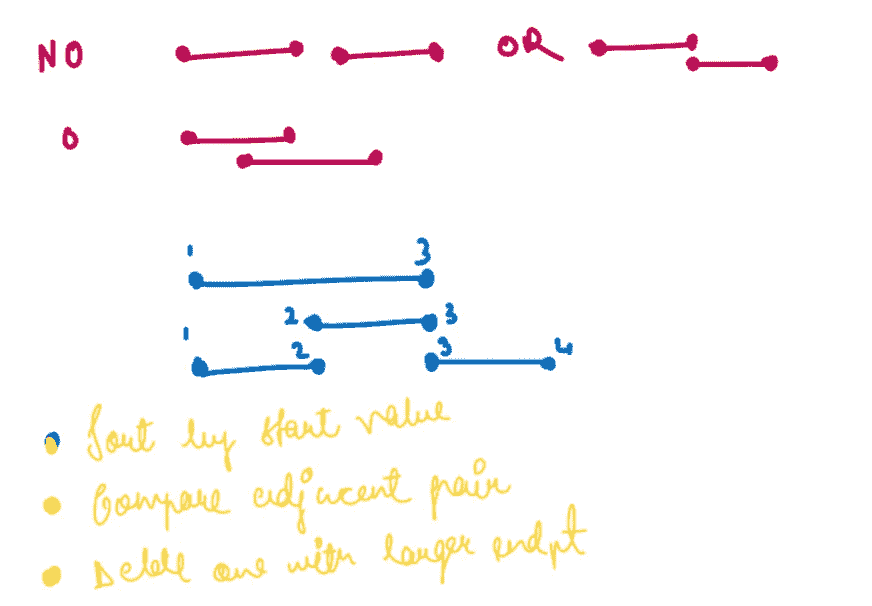 NO OR
O
1 3
2 3
1 2 3 4
Sort by start value
Compare adjacent pair
Delete one with larger endpt